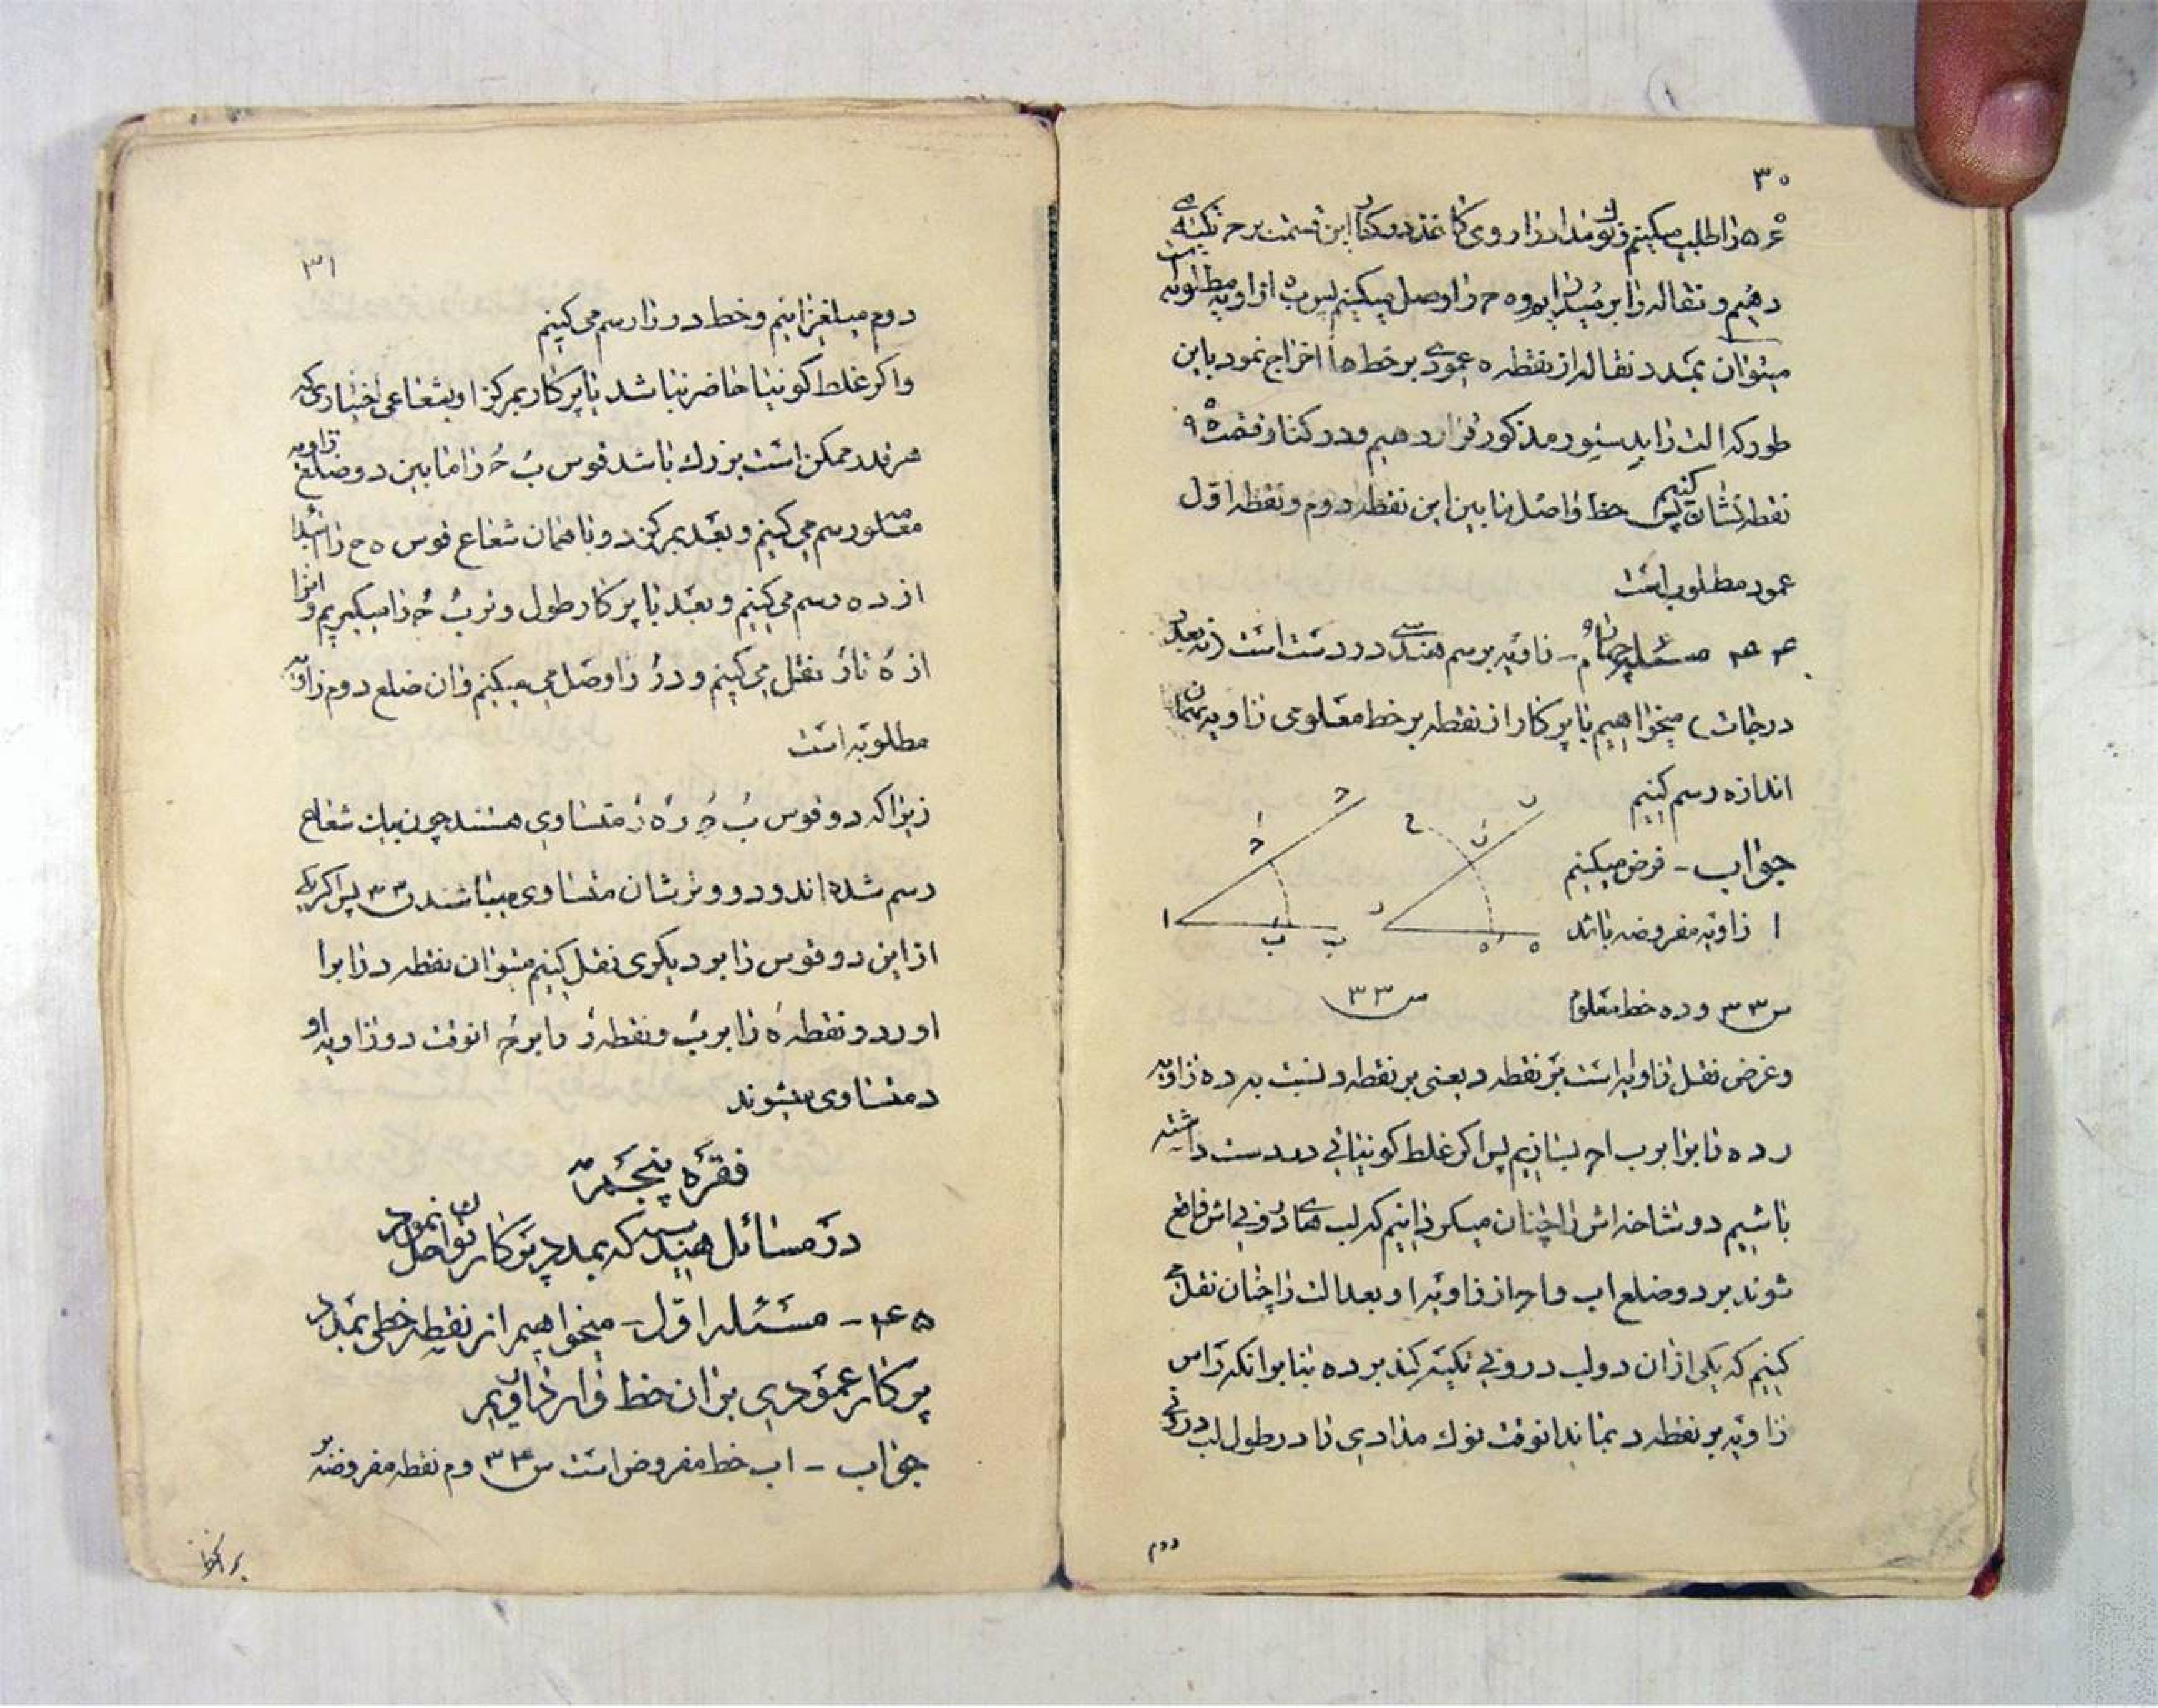 ۳۰
۵۶ را طلب میکنیم و نوک مداد را از روی کاغذ در کنار این قسمت بر ح تکیه می
دهیم و نقاله را بر میداریم و ه ح را وصل میکنیم پس ب ه ا زاویه مطلوبه است
میتوان بمدد نقاله از نقطه ه عمودی بر خط ها اخراج نمود باین
طور که الت را بدستور مذکور قرار دهیم و در کنار قسمت ۹۰
نقطه نشان کنیم پس خط واصل مابین این نقطه دوم و نقطه اول
عمود مطلوب است
۴۴ مسئله چهارم - زاویه برسم هندسی در دست است (نه بعدد
درجات) میخواهیم با پرکار از نقطه بر خط معلومی زاویه بهمان
اندازه رسم کنیم
جواب - فرض میکنیم
ا زاویه مفروضه باشد
س ۳۳ و ده خط معلوم
ح
ر
ب
د
ه
س ۳۳
و غرض نقل زاویه است بر نقطه د یعنی بر نقطه د نسبت به ده زاویه
رده را برابر ب ا ج بسازیم پس اگر غلط کونیائی در دست داشته
باشیم دو شاخه اش را چنان میکردانیم که لب های درونی اش واقع
شوند بر دو ضلع اب و اج از زاویه ا و بعد الت را چنان نقل می
کنیم که یکی از آن دو لب درونی تکیه کند بر ده بنا بر انکه راس
زاویه بر نقطه د بماند انوقت نوک مدادی را در طول لب درونی
دوم
۳۱
دوم میلغزانیم و خط در را رسم می کنیم
و اکر غلط کونیا حاضر نباشد با پرکار بمرکز ا و بشعاعی اختیاری که
هر قدر ممکن است بزرک باشد قوس بَ حَ را مابین دو ضلع زاویه
معلوم رسم می کنیم و بعد بمرکز د و با همان شعاع قوس ه ح را ابتدا
از ده رسم می کنیم و بعد با پرکار طول وتر بَ حَ را میکیریم و انرا
از هَ تا رَ نقل می کنیم و د رَ را وصل می کنیم و ان ضلع دوم زاویه
مطلوبه است
زیرا که دو قوس بَ جَ و رَ هَ متساوی هستند چون بیک شعاع
رسم شده اند و دو وترشان متساوی میباشند س ۳۳ پس اکر یکی
از این دو قوس را بر دیکری نقل کنیم میتوان نقطه د را بر ا
اورد و نقطه هَ را بر بَ و نقطه رَ را بر حَ انوقت دو زاویه ا و
د متساوی میشوند
فقره پنجم
در مسائل هندسیه که بمدد پرکار توان حل نمود
۴۵ - مسئله اول - میخواهیم از نقطه خطی بمدد
پرکار عمودی بر ان خط فرود اوریم
جواب - اب خط مفروض است س ۳۴ و م نقطه مفروضه
بر انخط